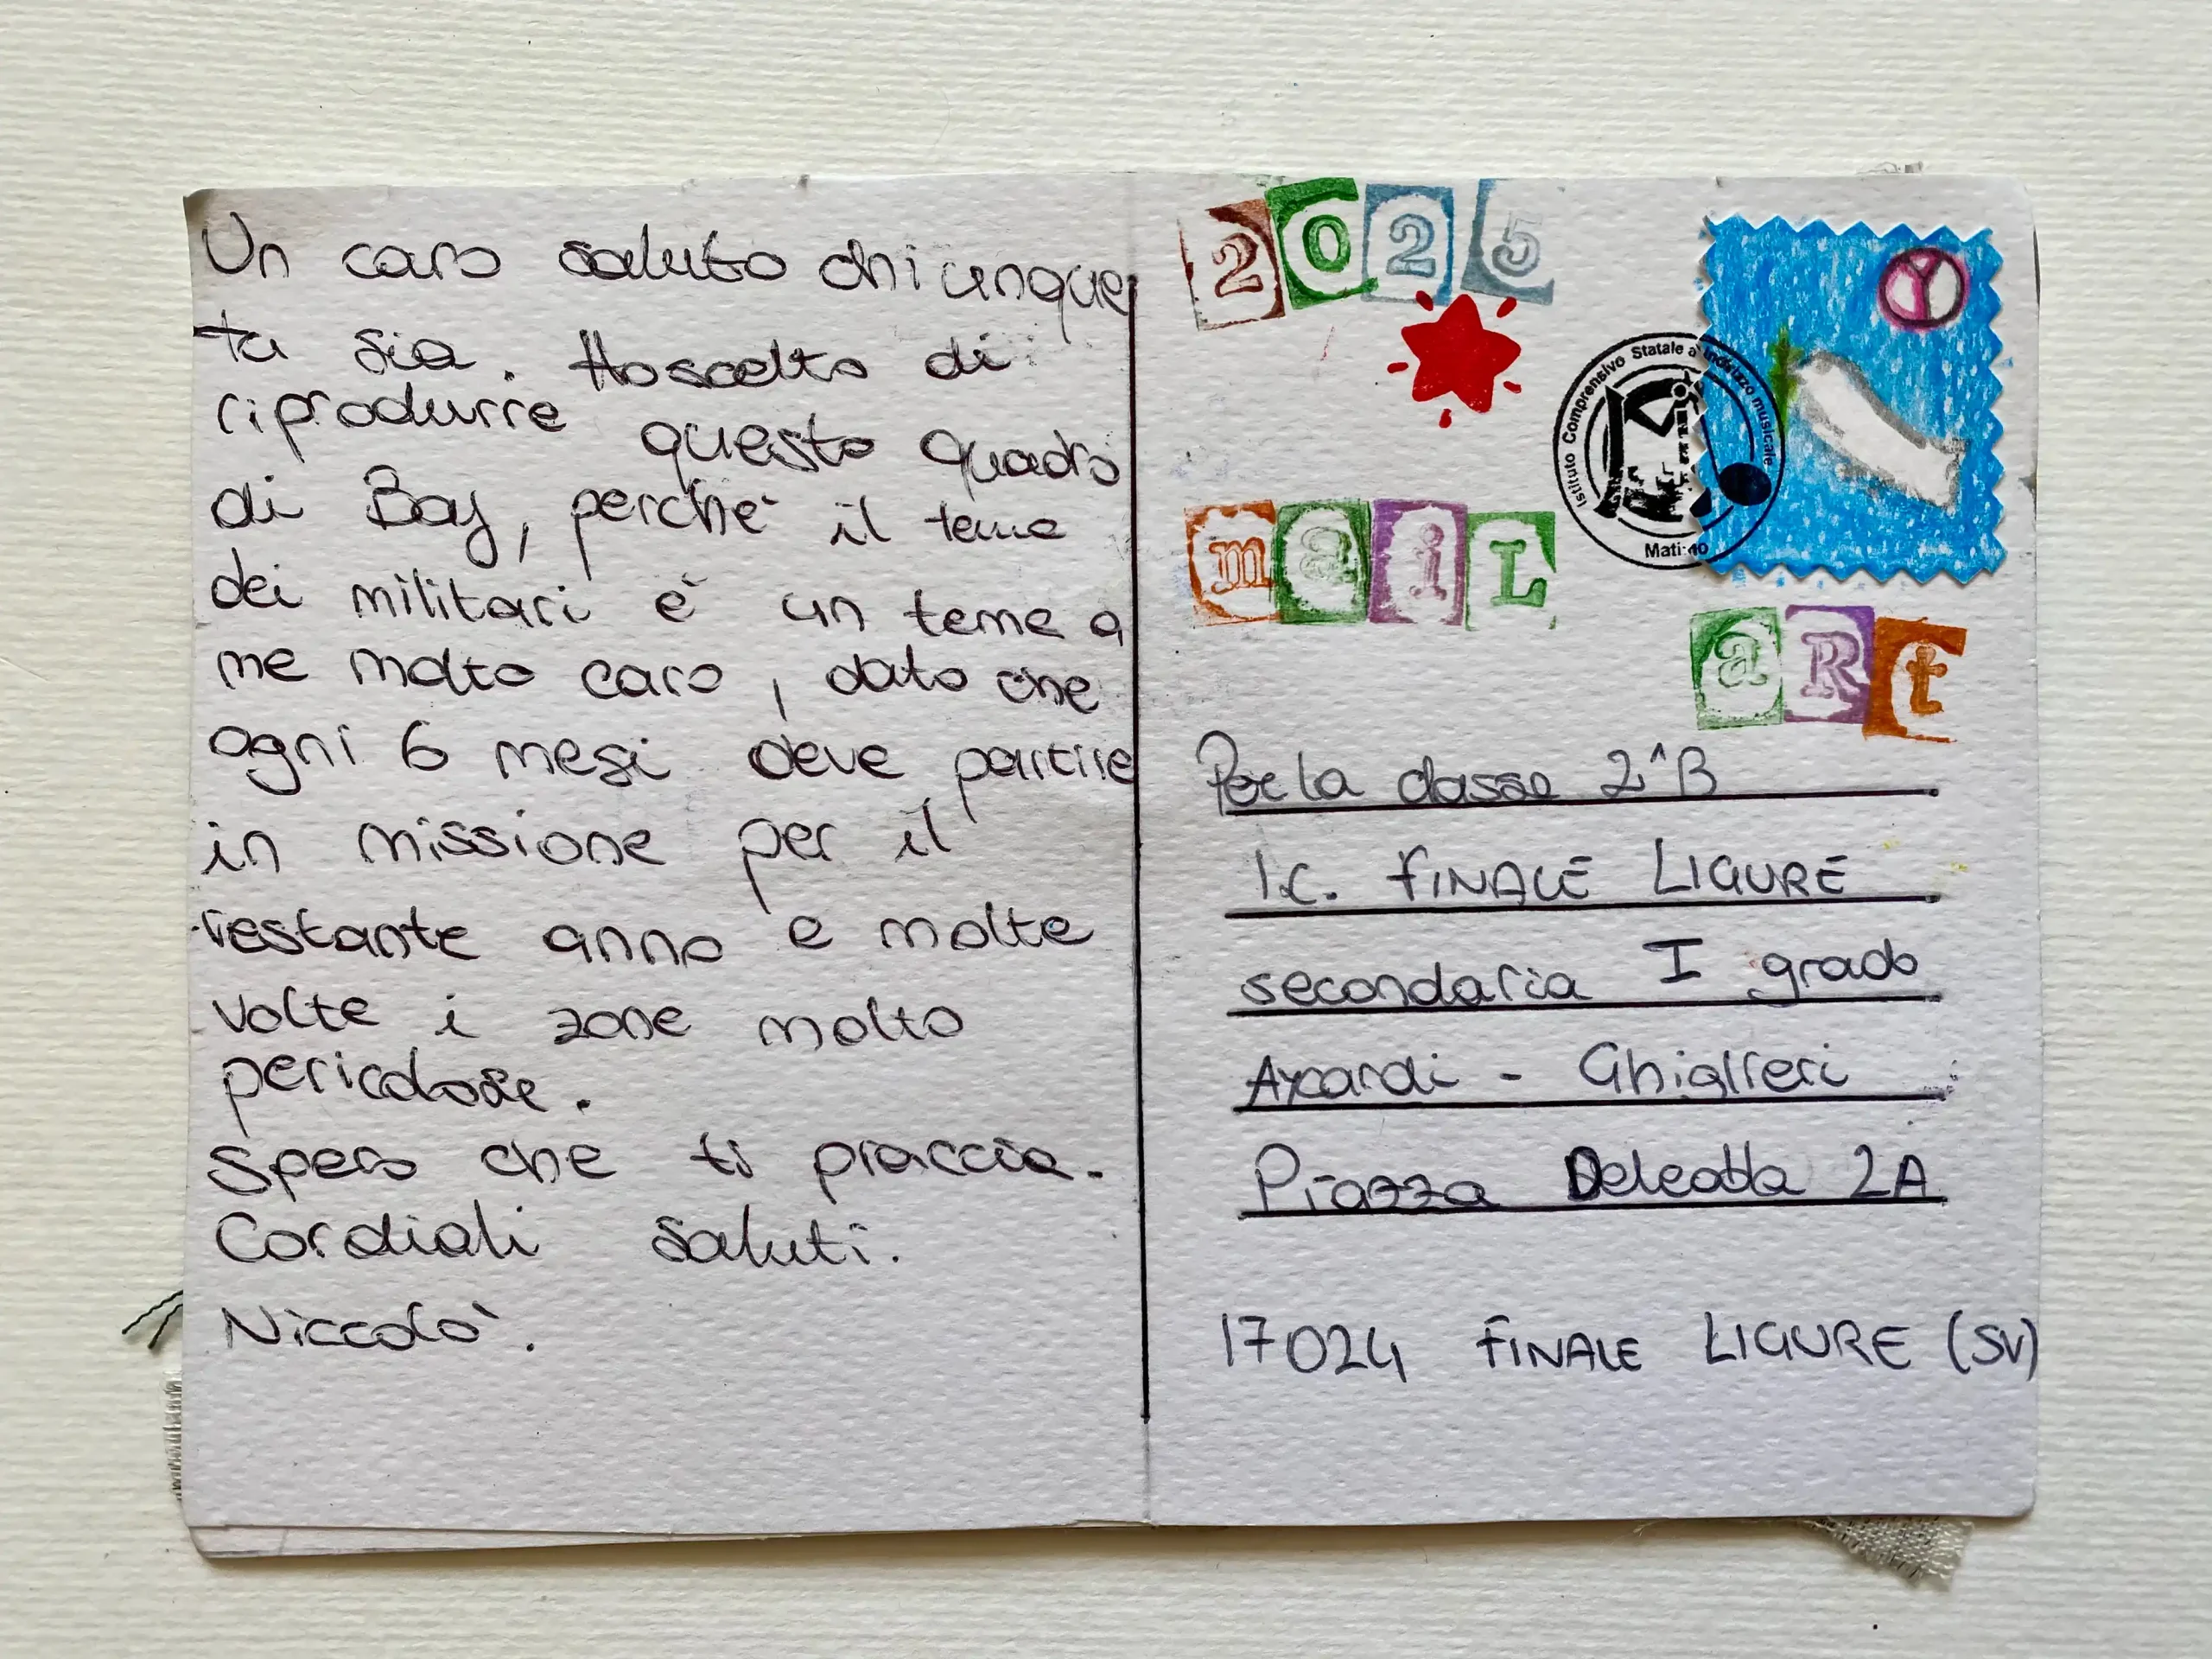 Un caro saluto chiunque
tu sia. Ho scelto di
riprodurre questo quadro
di Bay, perchè il tema
dei militari è un tema a
me molto caro, dato che
ogni 6 mesi deve partire
in missione per il
restante anno e molte
volte i zone molto
pericolose.
Spero che ti piaccia.
Cordiali saluti.
Niccolò.
2025
Istituto Comprensivo Statale a indirizzo musicale
Matino
Y
maiL
aRt
Per la classe 2^B
I.C. FINALE LIGURE
secondaria I grado
Aycardi - Ghiglieri
Piazza 2A
17024 FINALE LIGURE (SV)